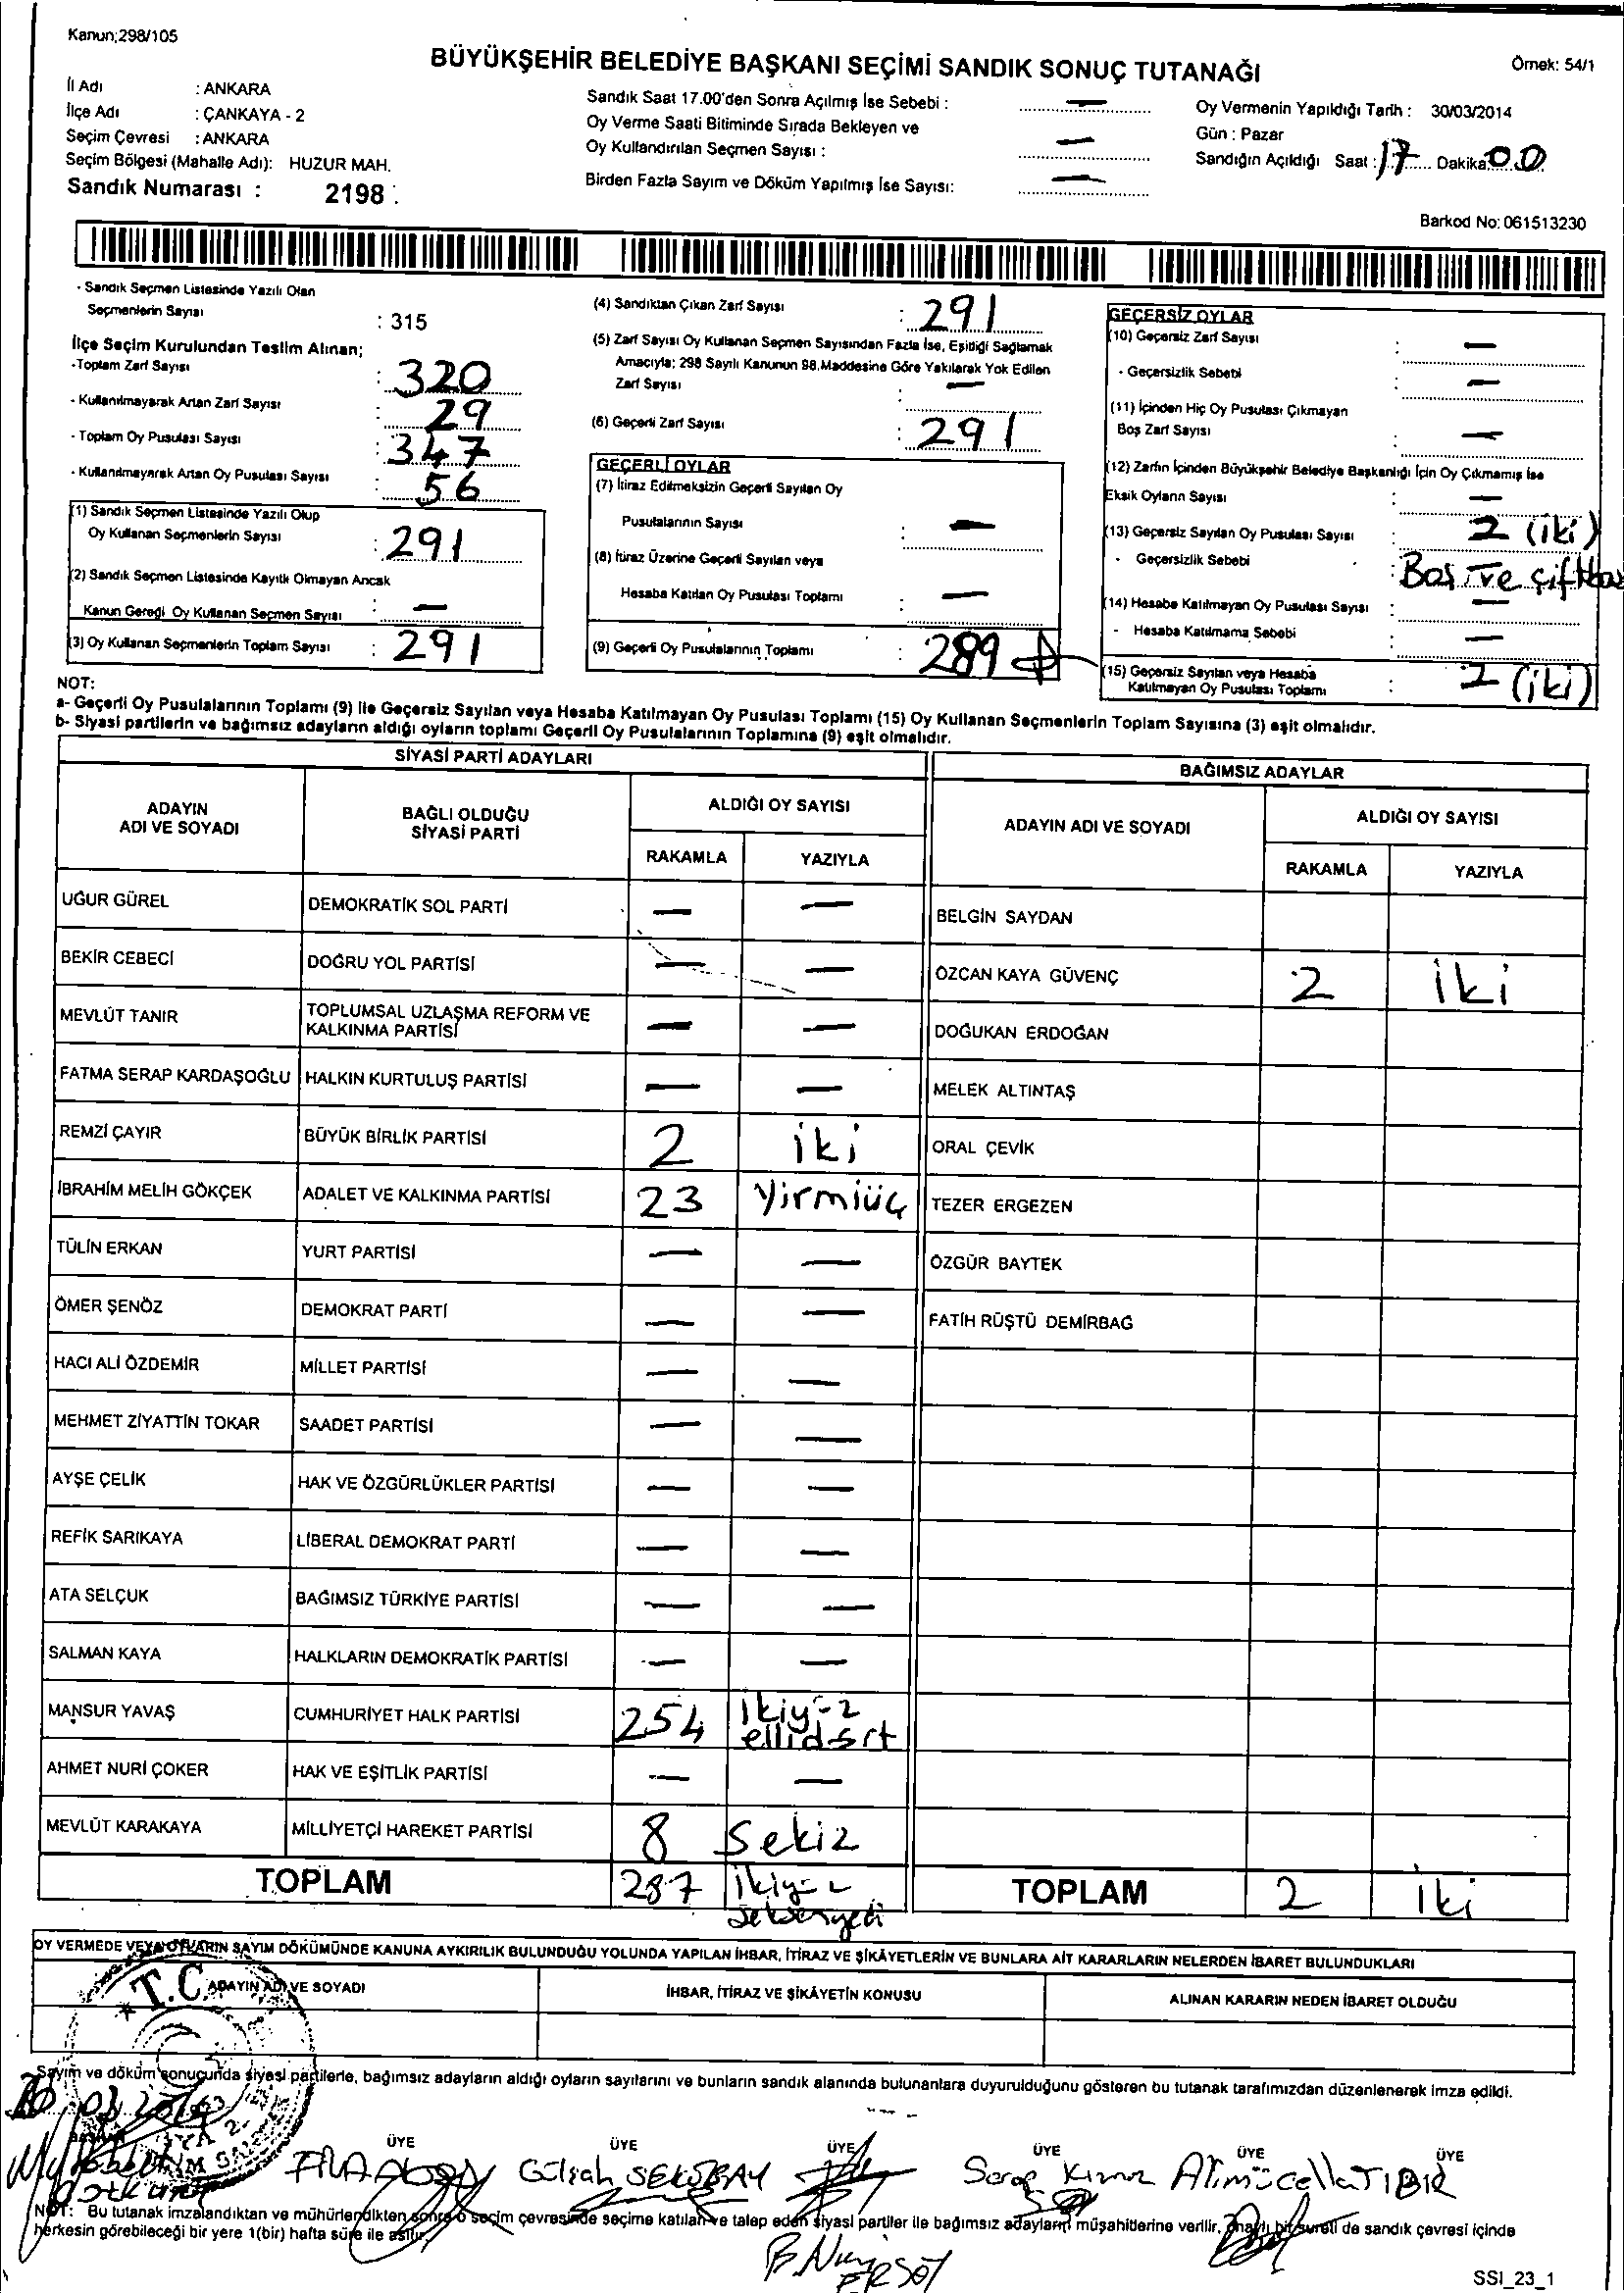 Kanun;298/105
BÜYÜKŞEHİR BELEDİYE BAŞKANI SEÇİMİ SANDIK SONUÇ TUTANAĞI
Örnek: 54/1
İl Adı : ANKARA
İlçe Adı : ÇANKAYA - 2
Seçim Çevresi : ANKARA
Seçim Bölgesi (Mahalle Adı): HUZUR MAH.
Sandık Numarası : 2198
Sandık Saat 17.00'den Sonra Açılmış İse Sebebi : —
Oy Verme Saati Bitiminde Sırada Bekleyen ve
Oy Kullandırılan Seçmen Sayısı : —
Birden Fazla Sayım ve Döküm Yapılmış İse Sayısı: —
Oy Vermenin Yapıldığı Tarih : 30/03/2014
Gün : Pazar
Sandığın Açıldığı Saat : 17 Dakika: 00
Barkod No: 061513230
- Sandık Seçmen Listesinde Yazılı Olan
Seçmenlerin Sayısı : 315
İlçe Seçim Kurulundan Teslim Alınan;
-Toplam Zarf Sayısı : 320
- Kullanılmayarak Artan Zarf Sayısı : 29
- Toplam Oy Pusulası Sayısı : 347
- Kullanılmayarak Artan Oy Pusulası Sayısı : 56
(1) Sandık Seçmen Listesinde Yazılı Olup
Oy Kullanan Seçmenlerin Sayısı : 291
(2) Sandık Seçmen Listesinde Kayıtlı Olmayan Ancak
Kanun Gereği Oy Kullanan Seçmen Sayısı : —
(3) Oy Kullanan Seçmenlerin Toplam Sayısı : 291
(4) Sandıktan Çıkan Zarf Sayısı : 291
(5) Zarf Sayısı Oy Kullanan Seçmen Sayısından Fazla İse, Eşitliği Sağlamak
Amacıyla; 298 Sayılı Kanunun 98.Maddesine Göre Yakılarak Yok Edilen
Zarf Sayısı : —
(6) Geçerli Zarf Sayısı : 291
GEÇERLİ OYLAR
(7) İtiraz Edilmeksizin Geçerli Sayılan Oy
Pusulalarının Sayısı : —
(8) İtiraz Üzerine Geçerli Sayılan veya
Hesaba Katılan Oy Pusulası Toplamı : —
(9) Geçerli Oy Pusulalarının Toplamı : 289
GEÇERSİZ OYLAR
(10) Geçersiz Zarf Sayısı : —
- Geçersizlik Sebebi : —
(11) İçinden Hiç Oy Pusulası Çıkmayan
Boş Zarf Sayısı : —
(12) Zarfın İçinden Büyükşehir Belediye Başkanlığı İçin Oy Çıkmamış İse
Eksik Oyların Sayısı : —
(13) Geçersiz Sayılan Oy Pusulası Sayısı : 2 (iki)
- Geçersizlik Sebebi : Boş ve çift
(14) Hesaba Katılmayan Oy Pusulası Sayısı : —
- Hesaba Katılmama Sebebi : —
(15) Geçersiz Sayılan veya Hesaba
Katılmayan Oy Pusulası Toplamı : 2 (iki)
NOT:
a- Geçerli Oy Pusulalarının Toplamı (9) ile Geçersiz Sayılan veya Hesaba Katılmayan Oy Pusulası Toplamı (15) Oy Kullanan Seçmenlerin Toplam Sayısına (3) eşit olmalıdır.
b- Siyasi partilerin ve bağımsız adayların aldığı oyların toplamı Geçerli Oy Pusulalarının Toplamına (9) eşit olmalıdır.
SİYASİ PARTİ ADAYLARI
BAĞIMSIZ ADAYLAR
ADAYIN ADI VE SOYADI
BAĞLI OLDUĞU SİYASİ PARTİ
ALDIĞI OY SAYISI
RAKAMLA YAZIYLA
ADAYIN ADI VE SOYADI
ALDIĞI OY SAYISI
RAKAMLA YAZIYLA
UĞUR GÜREL DEMOKRATİK SOL PARTİ — — BELGİN SAYDAN
BEKİR CEBECİ DOĞRU YOL PARTİSİ — — ÖZCAN KAYA GÜVENÇ 2 iki
MEVLÜT TANIR TOPLUMSAL UZLAŞMA REFORM VE KALKINMA PARTİSİ — — DOĞUKAN ERDOĞAN
FATMA SERAP KARDAŞOĞLU HALKIN KURTULUŞ PARTİSİ — — MELEK ALTINTAŞ
REMZİ ÇAYIR BÜYÜK BİRLİK PARTİSİ 2 iki ORAL ÇEVİK
İBRAHİM MELİH GÖKÇEK ADALET VE KALKINMA PARTİSİ 23 Yirmiüç TEZER ERGEZEN
TÜLİN ERKAN YURT PARTİSİ — — ÖZGÜR BAYTEK
ÖMER ŞENÖZ DEMOKRAT PARTİ — — FATİH RÜŞTÜ DEMİRBAĞ
HACI ALİ ÖZDEMİR MİLLET PARTİSİ — —
MEHMET ZİYATTİN TOKAR SAADET PARTİSİ — —
AYŞE ÇELİK HAK VE ÖZGÜRLÜKLER PARTİSİ — —
REFİK SARIKAYA LİBERAL DEMOKRAT PARTİ — —
ATA SELÇUK BAĞIMSIZ TÜRKİYE PARTİSİ — —
SALMAN KAYA HALKLARIN DEMOKRATİK PARTİSİ — —
MANSUR YAVAŞ CUMHURİYET HALK PARTİSİ 254 ikiyüz ellidört
AHMET NURİ ÇOKER HAK VE EŞİTLİK PARTİSİ — —
MEVLÜT KARAKAYA MİLLİYETÇİ HAREKET PARTİSİ 8 Sekiz
TOPLAM 287 ikiyüz seksenyedi TOPLAM 2 iki
OY VERMEDE VEYA OYLARIN SAYIM DÖKÜMÜNDE KANUNA AYKIRILIK BULUNDUĞU YOLUNDA YAPILAN İHBAR, İTİRAZ VE ŞİKÂYETLERİN VE BUNLARA AİT KARARLARIN NELERDEN İBARET BULUNDUKLARI
ADAYIN ADI VE SOYADI İHBAR, İTİRAZ VE ŞİKÂYETİN KONUSU ALINAN KARARIN NEDEN İBARET OLDUĞU
T.C.
Sayım ve döküm sonucunda siyasi partilerle, bağımsız adayların aldığı oyların sayılarını ve bunların sandık alanında bulunanlara duyurulduğunu gösteren bu tutanak tarafımızdan düzenlenerek imza edildi.
ÜYE ÜYE ÜYE ÜYE ÜYE ÜYE
Gülşah
NOT: Bu tutanak imzalandıktan ve mühürlendikten sonra o seçim çevresinde seçime katılan ve talep eden siyasi partiler ile bağımsız adayların müşahitlerine verilir, onaylı bir sureti de sandık çevresi içinde
herkesin görebileceği bir yere 1(bir) hafta süre ile asılır.
B. Nuri
ERSOY
SSI_23_1